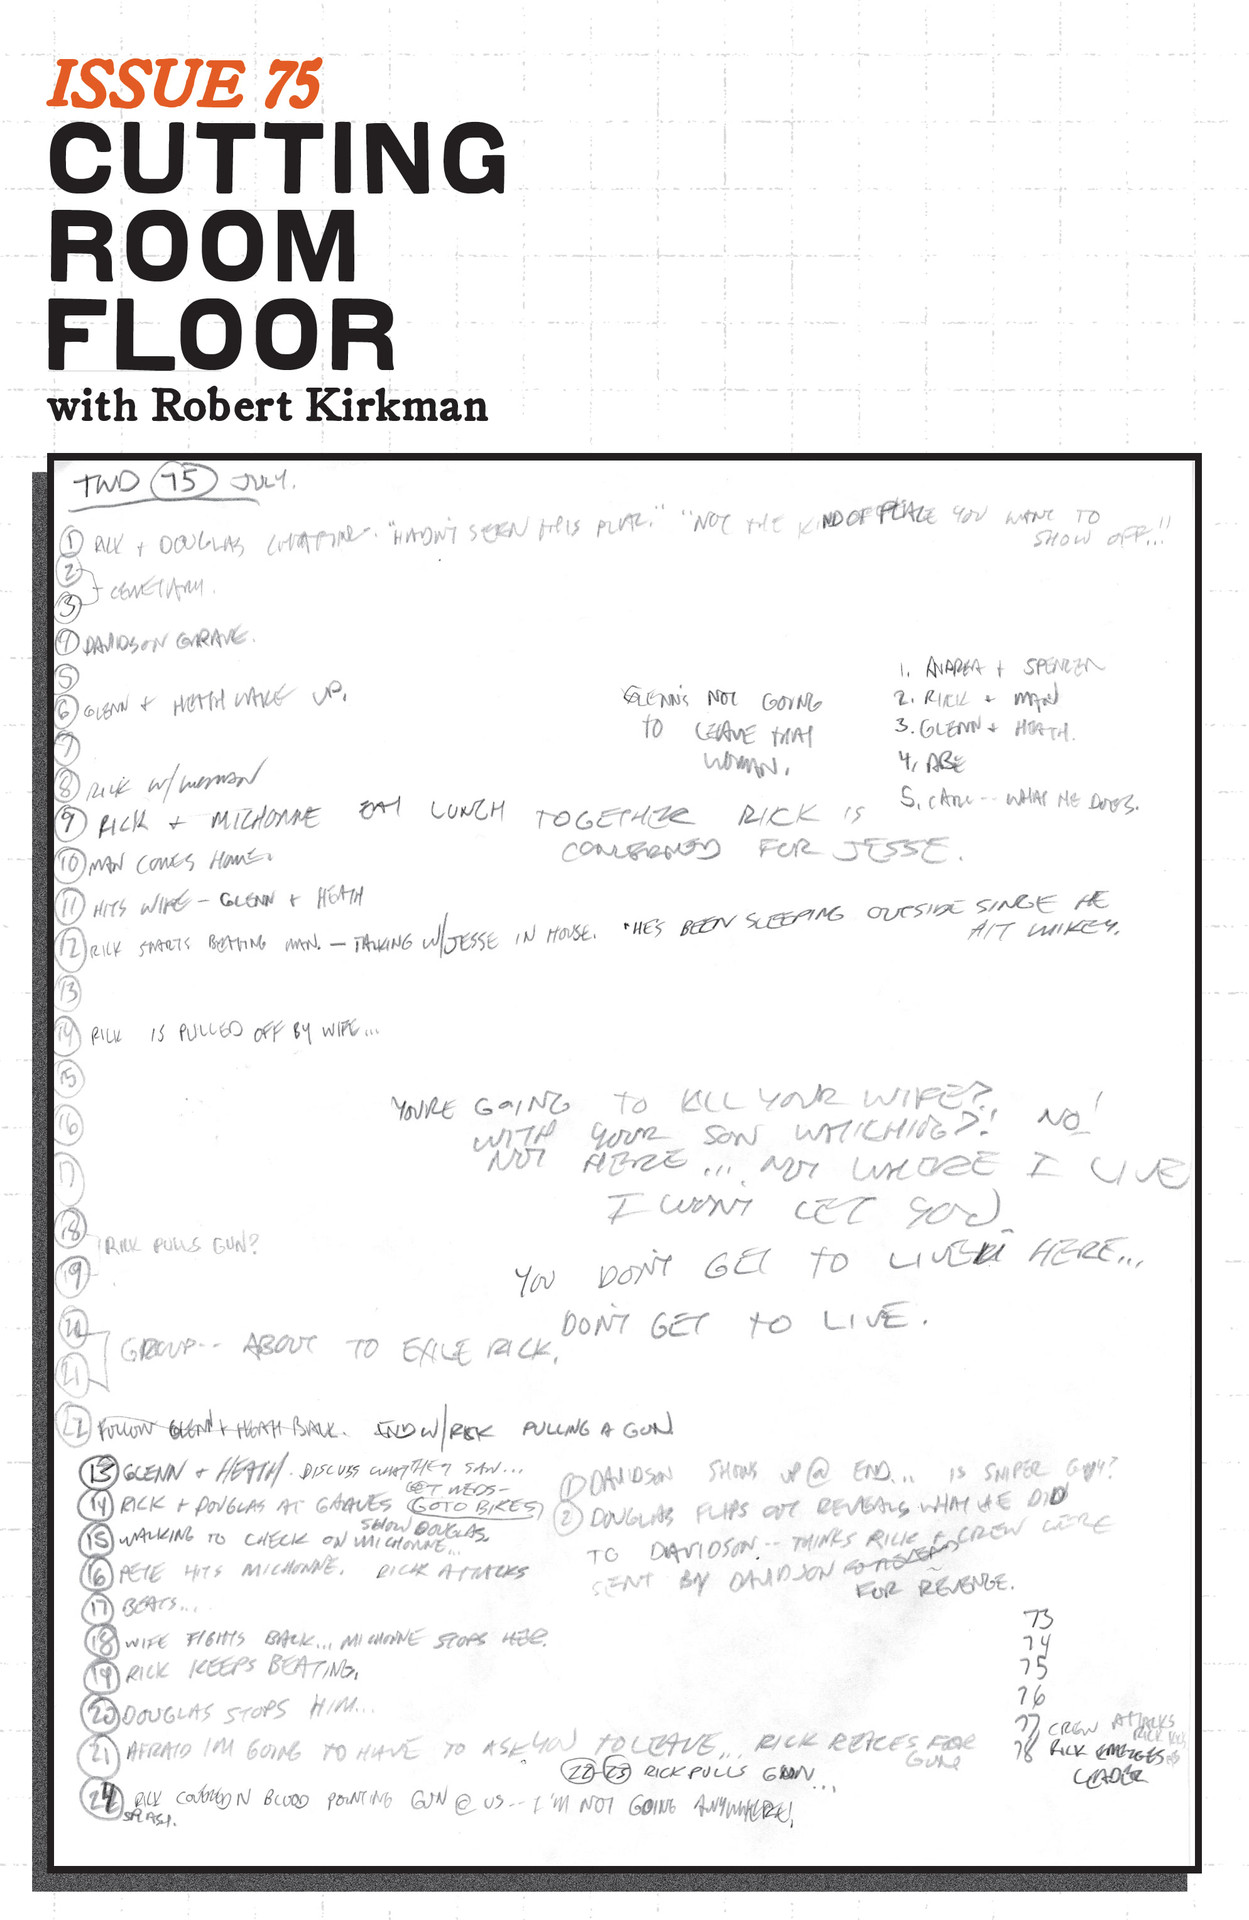 ISSUE 75
CUTTING
ROOM
FLOOR
with Robert Kirkman
TWD 75 JULY.
1 RICK + DOUGLAS CHATTING. "HADN'T SEEN THIS PLACE." "NOT THE KIND OF PLACE YOU WANT TO
SHOW OFF..."
2
3 CEMETARY.
4 DAVIDSON GRAVE.
5
6 GLENN + HEATH WAKE UP.
7
8 RICK W/ WOMAN
9 RICK + MICHONNE EAT LUNCH TOGETHER RICK IS
CONCERNED FOR JESSE.
10 MAN COMES HOME.
11 HITS WIFE - GLENN + HEATH
12 RICK STARTS BEATING MAN. - TALKING W/JESSE IN HOUSE. "HE'S BEEN SLEEPING OUTSIDE SINCE HE
HIT MIKEY.
GLENN'S NOT GOING
TO LEAVE THAT
WOMAN.
1. ANDREA + SPENCER
2. RICK + MAN
3. GLENN + HEATH.
4. ABE
5. CARL-- WHAT HE DOES.
13
14 RICK IS PULLED OFF BY WIFE...
15
16
17
YOU'RE GOING TO KILL YOUR WIFE?
WITH YOUR SON WATCHING?! NO!
NOT HERE... NOT WHERE I LIVE
I WON'T LET YOU.
18 RICK PULLS GUN?
19
YOU DON'T GET TO LIVE HERE...
DON'T GET TO LIVE.
20
21 GROUP-- ABOUT TO EXILE RICK.
22 FOLLOW GLENN + HEATH BACK. END W/RICK PULLING A GUN
13 GLENN + HEATH. DISCUSS WHAT THEY SAW...
GET MEDS-
14 RICK + DOUGLAS AT GRAVES (GOTO BIKES)
SHOW DOUGLAS
15 WALKING TO CHECK ON MICHONNE...
16 PETE HITS MICHONNE. RICK ATTACKS
17 BEATS...
18 WIFE FIGHTS BACK... MICHONNE STOPS HER.
19 RICK KEEPS BEATING.
20 DOUGLAS STOPS HIM...
21 AFRAID I'M GOING TO HAVE TO ASK YOU TO LEAVE... RICK REACHES FOR
GUN
22-23 RICK PULLS GUN...
24 RICK COVERED N BLOOD POINTING GUN @ US-- I'M NOT GOING ANYWHERE!
SPLASH.
1 DAVIDSON SHOWS UP @ END... IS SNIPER GUY?
2 DOUGLAS FLIPS OUT REVEALS WHAT HE DID
TO DAVIDSON-- THINKS RICK + CREW WERE
SENT BY DAVIDSON
FOR REVENGE.
73
74
75
76
77 CREW ATTACKS
78 RICK EMERGES
LEADER